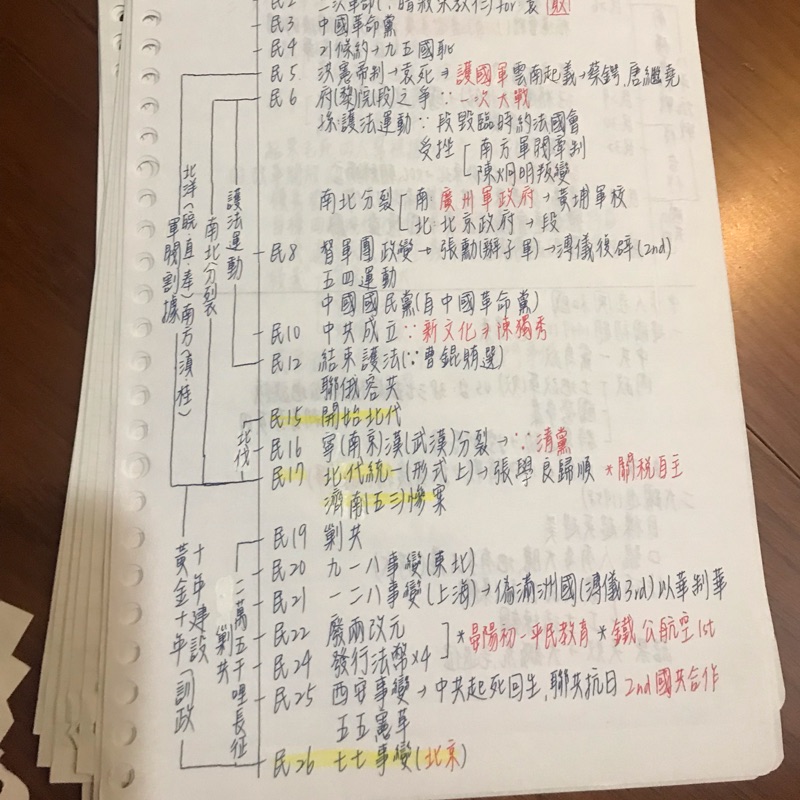 民2 二次革命(∵暗殺宋教仁) for 袁 敗
民3 中國革命黨
民4 21條約→九五國恥
民5 洪憲帝制→袁死⇒護國軍雲南起義→蔡鍔,唐繼堯
民6 府(黎)院(段)之爭 ∵一次大戰
孫:護法運動∵段毀臨時約法國會
受挫 南方軍閥牽制
陳炯明叛變
南北分裂 南:廣州軍政府→黃埔軍校
北:北京政府→段
民8 督軍團政變→張勳(辮子軍)→溥儀復辟(2nd)
五四運動
中國國民黨(自中國革命黨)
民10 中共成立∵新文化⇒陳獨秀
民12 結束護法(∵曹錕賄選)
聯俄容共
民15 開始北伐
民16 寧(南京)漢(武漢)分裂→∵清黨
民17 北伐統一(形式上)→張學良歸順 *關稅自主
濟南(五三)慘案
民19 剿共
民20 九一八事變(東北)
民21 一二八事變(上海)→偽滿洲國(溥儀3rd)以華制華
民22 廢兩改元
*晏陽初-平民教育 *鐵公航空1st
民24 發行法幣x4
民25 西安事變→中共起死回生,聯共抗日 2nd國共合作
五五憲草
民26 七七事變(北京)
北洋(皖.直.奉)南方(滇.桂)
軍閥割據
南北分裂
護法運動
北伐
十年建設
黃金十年(訓政)
剿共
二萬五千哩長征